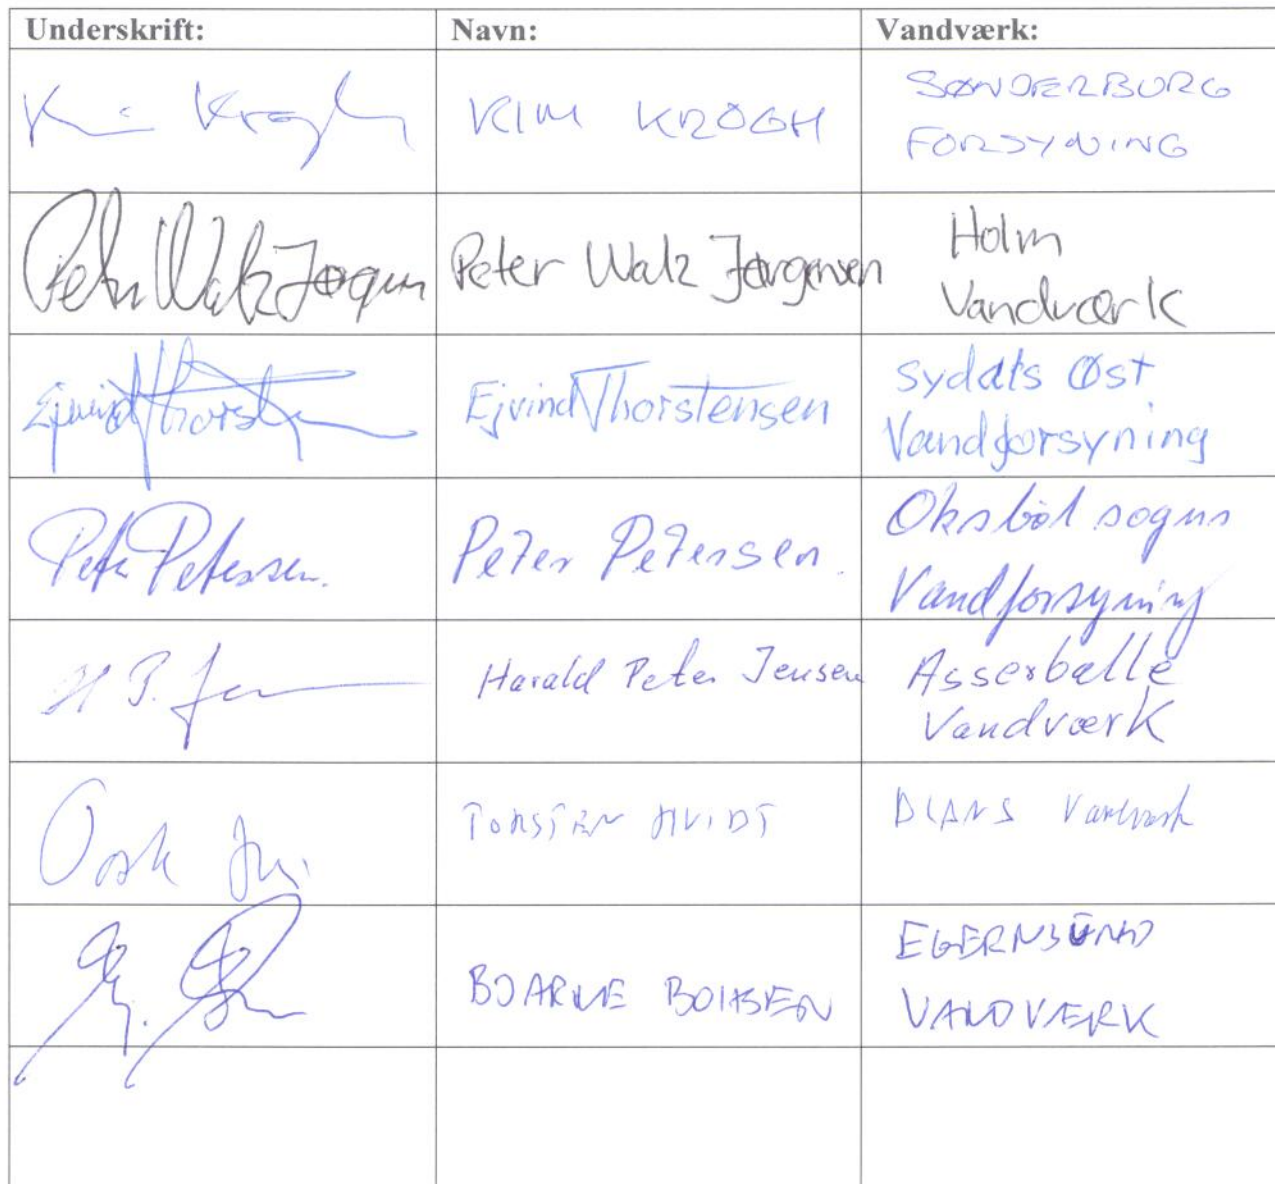 Underskrift: Navn: Vandværk:
Kim Krogh KIM KROGH SØNDERBORG
FORSYNING
Peter Walz Jørgensen Peter Walz Jørgensen Holm
Vandværk
Ejvind Thorst Ejvind Thorstensen Sydals Øst
Vandforsyning
Peter Petersen. Peter Petersen. Oksböl sogns
Vandforsyning
H P. Harald Peter Jensen Asserballe
Vandværk
TORSTEN HVIDT BLANS Vandværk
BJARNE EGERNSUND
VANDVÆRK